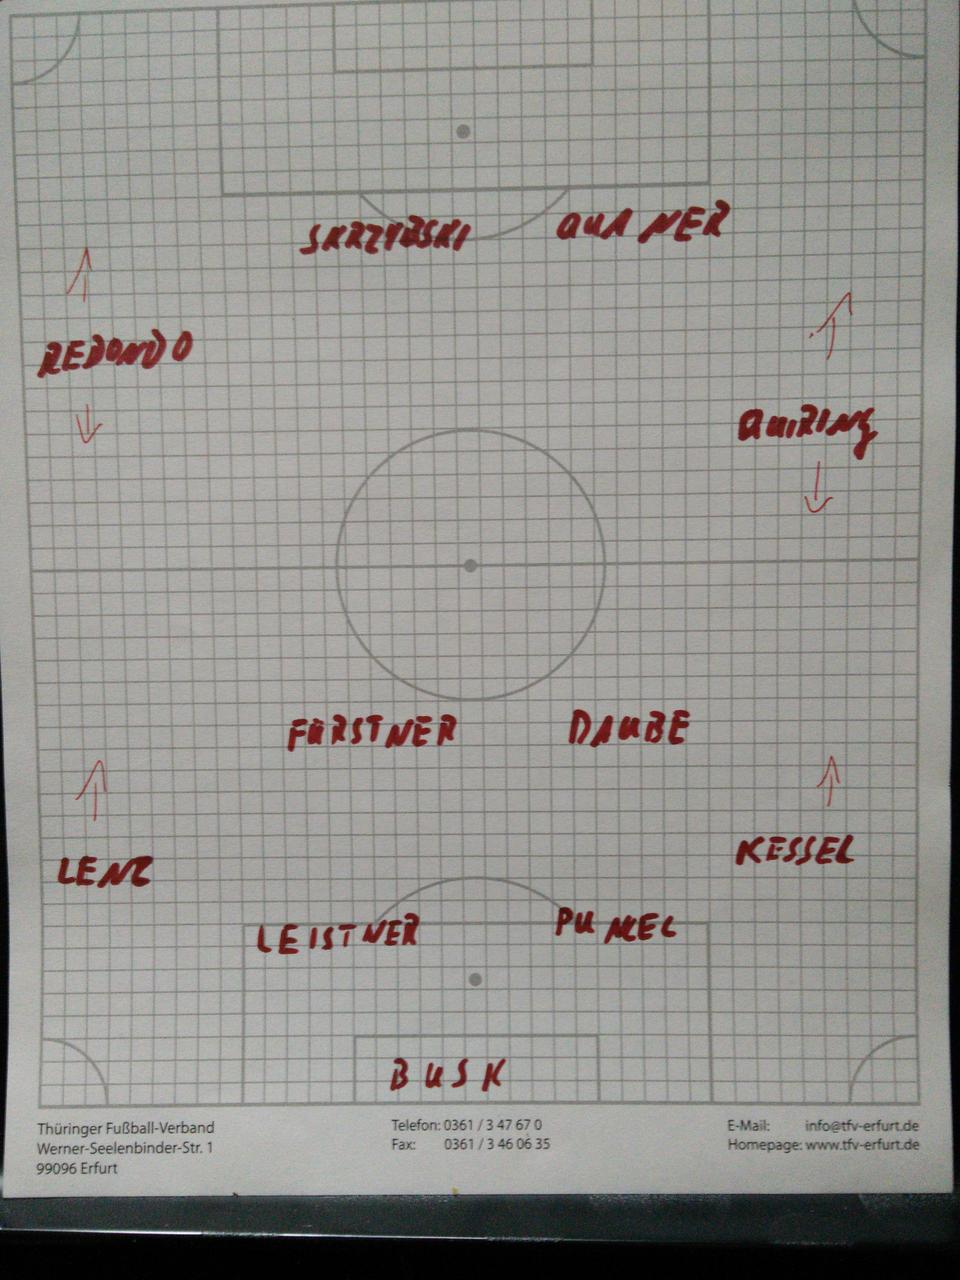 SKRZYBSKI QUANER
REDONDO
QUIRING
FÜRSTNER DAUBE
LENZ KESSEL
LEISTNER PUNCEC
BUSK
Thüringer Fußball-Verband
Werner-Seelenbinder-Str. 1
99096 Erfurt
Telefon: 0361 / 3 47 67 0
Fax: 0361 / 3 46 06 35
E-Mail: info@tfv-erfurt.de
Homepage: www.tfv-erfurt.de